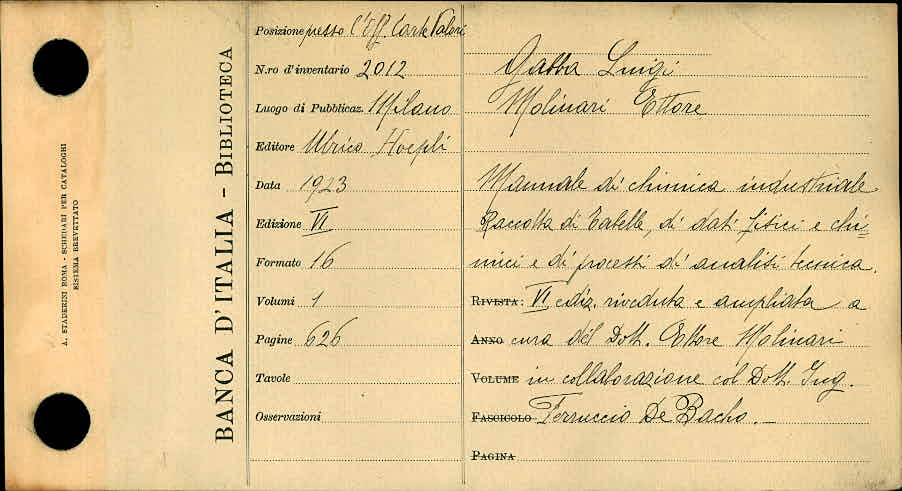 A. STADERINI ROMA - SCHEDARI PER CATALOGHI
SISTEMA BREVETTATO
BANCA D'ITALIA - BIBLIOTECA
Posizione presso l'Off. Carte Valori
N.ro d'inventario 2012
Luogo di Pubblicaz. Milano
Editore Ulrico Hoepli
Data 1923
Edizione VI
Formato 16
Volumi 1
Pagine 626
Tavole
Osservazioni
Gabba Luigi
Molinari Ettore
Manuale di chimica industriale
Raccolta di Tabelle, di dati fisici e chi=
mici e di processi di analisi tecnica.
RIVISTA: VI ediz. riveduta e ampliata a
ANNO cura del Dott. Ettore Molinari
VOLUME in collaborazione col Dott. Ing.
FASCICOLO Ferruccio De Bacho.—
PAGINA